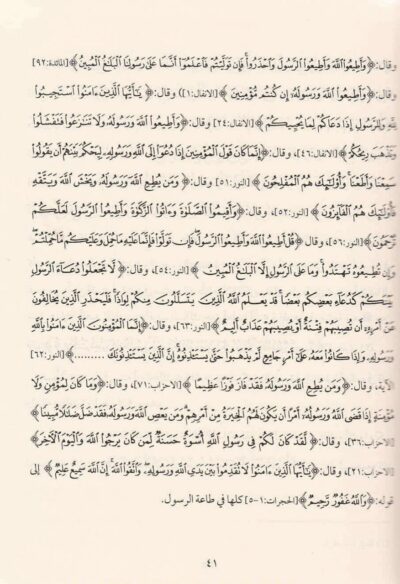 وقال:﴿وَأَطِيعُوا۟ ٱللَّهَ وَأَطِيعُوا۟ ٱلرَّسُولَ وَٱحْذَرُوا۟ۚ فَإِن تَوَلَّيْتُمْ فَٱعْلَمُوٓا۟ أَنَّمَا عَلَىٰ رَسُولِنَا ٱلْبَلَٰغُ ٱلْمُبِينُ﴾[المائدة:٩٢]
وقال:﴿وَأَطِيعُوا۟ ٱللَّهَ وَرَسُولَهُۥٓ إِن كُنتُم مُّؤْمِنِينَ﴾[الانفال:١]) وقال:﴿يَٰٓأَيُّهَا ٱلَّذِينَ ءَامَنُوا۟ ٱسْتَجِيبُوا۟
لِلَّهِ وَلِلرَّسُولِ إِذَا دَعَاكُمْ لِمَا يُحْيِيكُمْ﴾[الانفال:٢٤] وقال:﴿وَأَطِيعُوا۟ ٱللَّهَ وَرَسُولَهُۥ وَلَا تَنَٰزَعُوا۟ فَتَفْشَلُوا۟
وَتَذْهَبَ رِيحُكُمْ﴾[الانفال:٤٦]، وقال:﴿إِنَّمَا كَانَ قَوْلَ ٱلْمُؤْمِنِينَ إِذَا دُعُوٓا۟ إِلَى ٱللَّهِ وَرَسُولِهِۦ لِيَحْكُمَ بَيْنَهُمْ أَن يَقُولُوا۟
سَمِعْنَا وَأَطَعْنَاۚ وَأُو۟لَٰٓئِكَ هُمُ ٱلْمُفْلِحُونَ﴾[النور:٥١] وقال:﴿وَمَن يُطِعِ ٱللَّهَ وَرَسُولَهُۥ وَيَخْشَ ٱللَّهَ وَيَتَّقْهِ
فَأُو۟لَٰٓئِكَ هُمُ ٱلْفَآئِزُونَ﴾[النور:٥٢]، وقال:﴿وَأَقِيمُوا۟ ٱلصَّلَوٰةَ وَءَاتُوا۟ ٱلزَّكَوٰةَ وَأَطِيعُوا۟ ٱلرَّسُولَ لَعَلَّكُمْ
تُرْحَمُونَ﴾[النور:٥٦]، وقال:﴿قُلْ أَطِيعُوا۟ ٱللَّهَ وَأَطِيعُوا۟ ٱلرَّسُولَۖ فَإِن تَوَلَّوْا۟ فَإِنَّمَا عَلَيْهِ مَا حُمِّلَ وَعَلَيْكُم مَّا حُمِّلْتُمْۖ
وَإِن تُطِيعُوهُ تَهْتَدُوا۟ۚ وَمَا عَلَى ٱلرَّسُولِ إِلَّا ٱلْبَلَٰغُ ٱلْمُبِينُ﴾[النور:٥٤]، وقال:﴿لَّا تَجْعَلُوا۟ دُعَآءَ ٱلرَّسُولِ
بَيْنَكُمْ كَدُعَآءِ بَعْضِكُم بَعْضًاۚ قَدْ يَعْلَمُ ٱللَّهُ ٱلَّذِينَ يَتَسَلَّلُونَ مِنكُمْ لِوَاذًاۚ فَلْيَحْذَرِ ٱلَّذِينَ يُخَالِفُونَ
عَنْ أَمْرِهِۦٓ أَن تُصِيبَهُمْ فِتْنَةٌ أَوْ يُصِيبَهُمْ عَذَابٌ أَلِيمٌ﴾[النور:٦٣]، وقال:﴿إِنَّمَا ٱلْمُؤْمِنُونَ ٱلَّذِينَ ءَامَنُوا۟ بِٱللَّهِ
وَرَسُولِهِۦ وَإِذَا كَانُوا۟ مَعَهُۥ عَلَىٰٓ أَمْرٍ جَامِعٍ لَّمْ يَذْهَبُوا۟ حَتَّىٰ يَسْتَـْٔذِنُوهُۚ إِنَّ ٱلَّذِينَ يَسْتَـْٔذِنُونَكَ..........﴾[النور:٦٢]
الآية، وقال:﴿وَمَن يُطِعِ ٱللَّهَ وَرَسُولَهُۥ فَقَدْ فَازَ فَوْزًا عَظِيمًا﴾[الاحزاب:٧١]، وقال:﴿وَمَا كَانَ لِمُؤْمِنٍ وَلَا
مُؤْمِنَةٍ إِذَا قَضَى ٱللَّهُ وَرَسُولُهُۥٓ أَمْرًا أَن يَكُونَ لَهُمُ ٱلْخِيَرَةُ مِنْ أَمْرِهِمْۗ وَمَن يَعْصِ ٱللَّهَ وَرَسُولَهُۥ فَقَدْ ضَلَّ ضَلَٰلًا مُّبِينًا﴾
[الاحزاب:٣٦]، وقال:﴿لَّقَدْ كَانَ لَكُمْ فِى رَسُولِ ٱللَّهِ أُسْوَةٌ حَسَنَةٌ لِّمَن كَانَ يَرْجُوا۟ ٱللَّهَ وَٱلْيَوْمَ ٱلْءَاخِرَ﴾
[الاحزاب:٢١]، وقال:﴿يَٰٓأَيُّهَا ٱلَّذِينَ ءَامَنُوا۟ لَا تُقَدِّمُوا۟ بَيْنَ يَدَىِ ٱللَّهِ وَرَسُولِهِۦۖ وَٱتَّقُوا۟ ٱللَّهَۚ إِنَّ ٱللَّهَ سَمِيعٌ عَلِيمٌ﴾ إلى
قوله:﴿وَٱللَّهُ غَفُورٌ رَّحِيمٌ﴾[الحجرات:١-٥] كلها في طاعة الرسول.
٤١